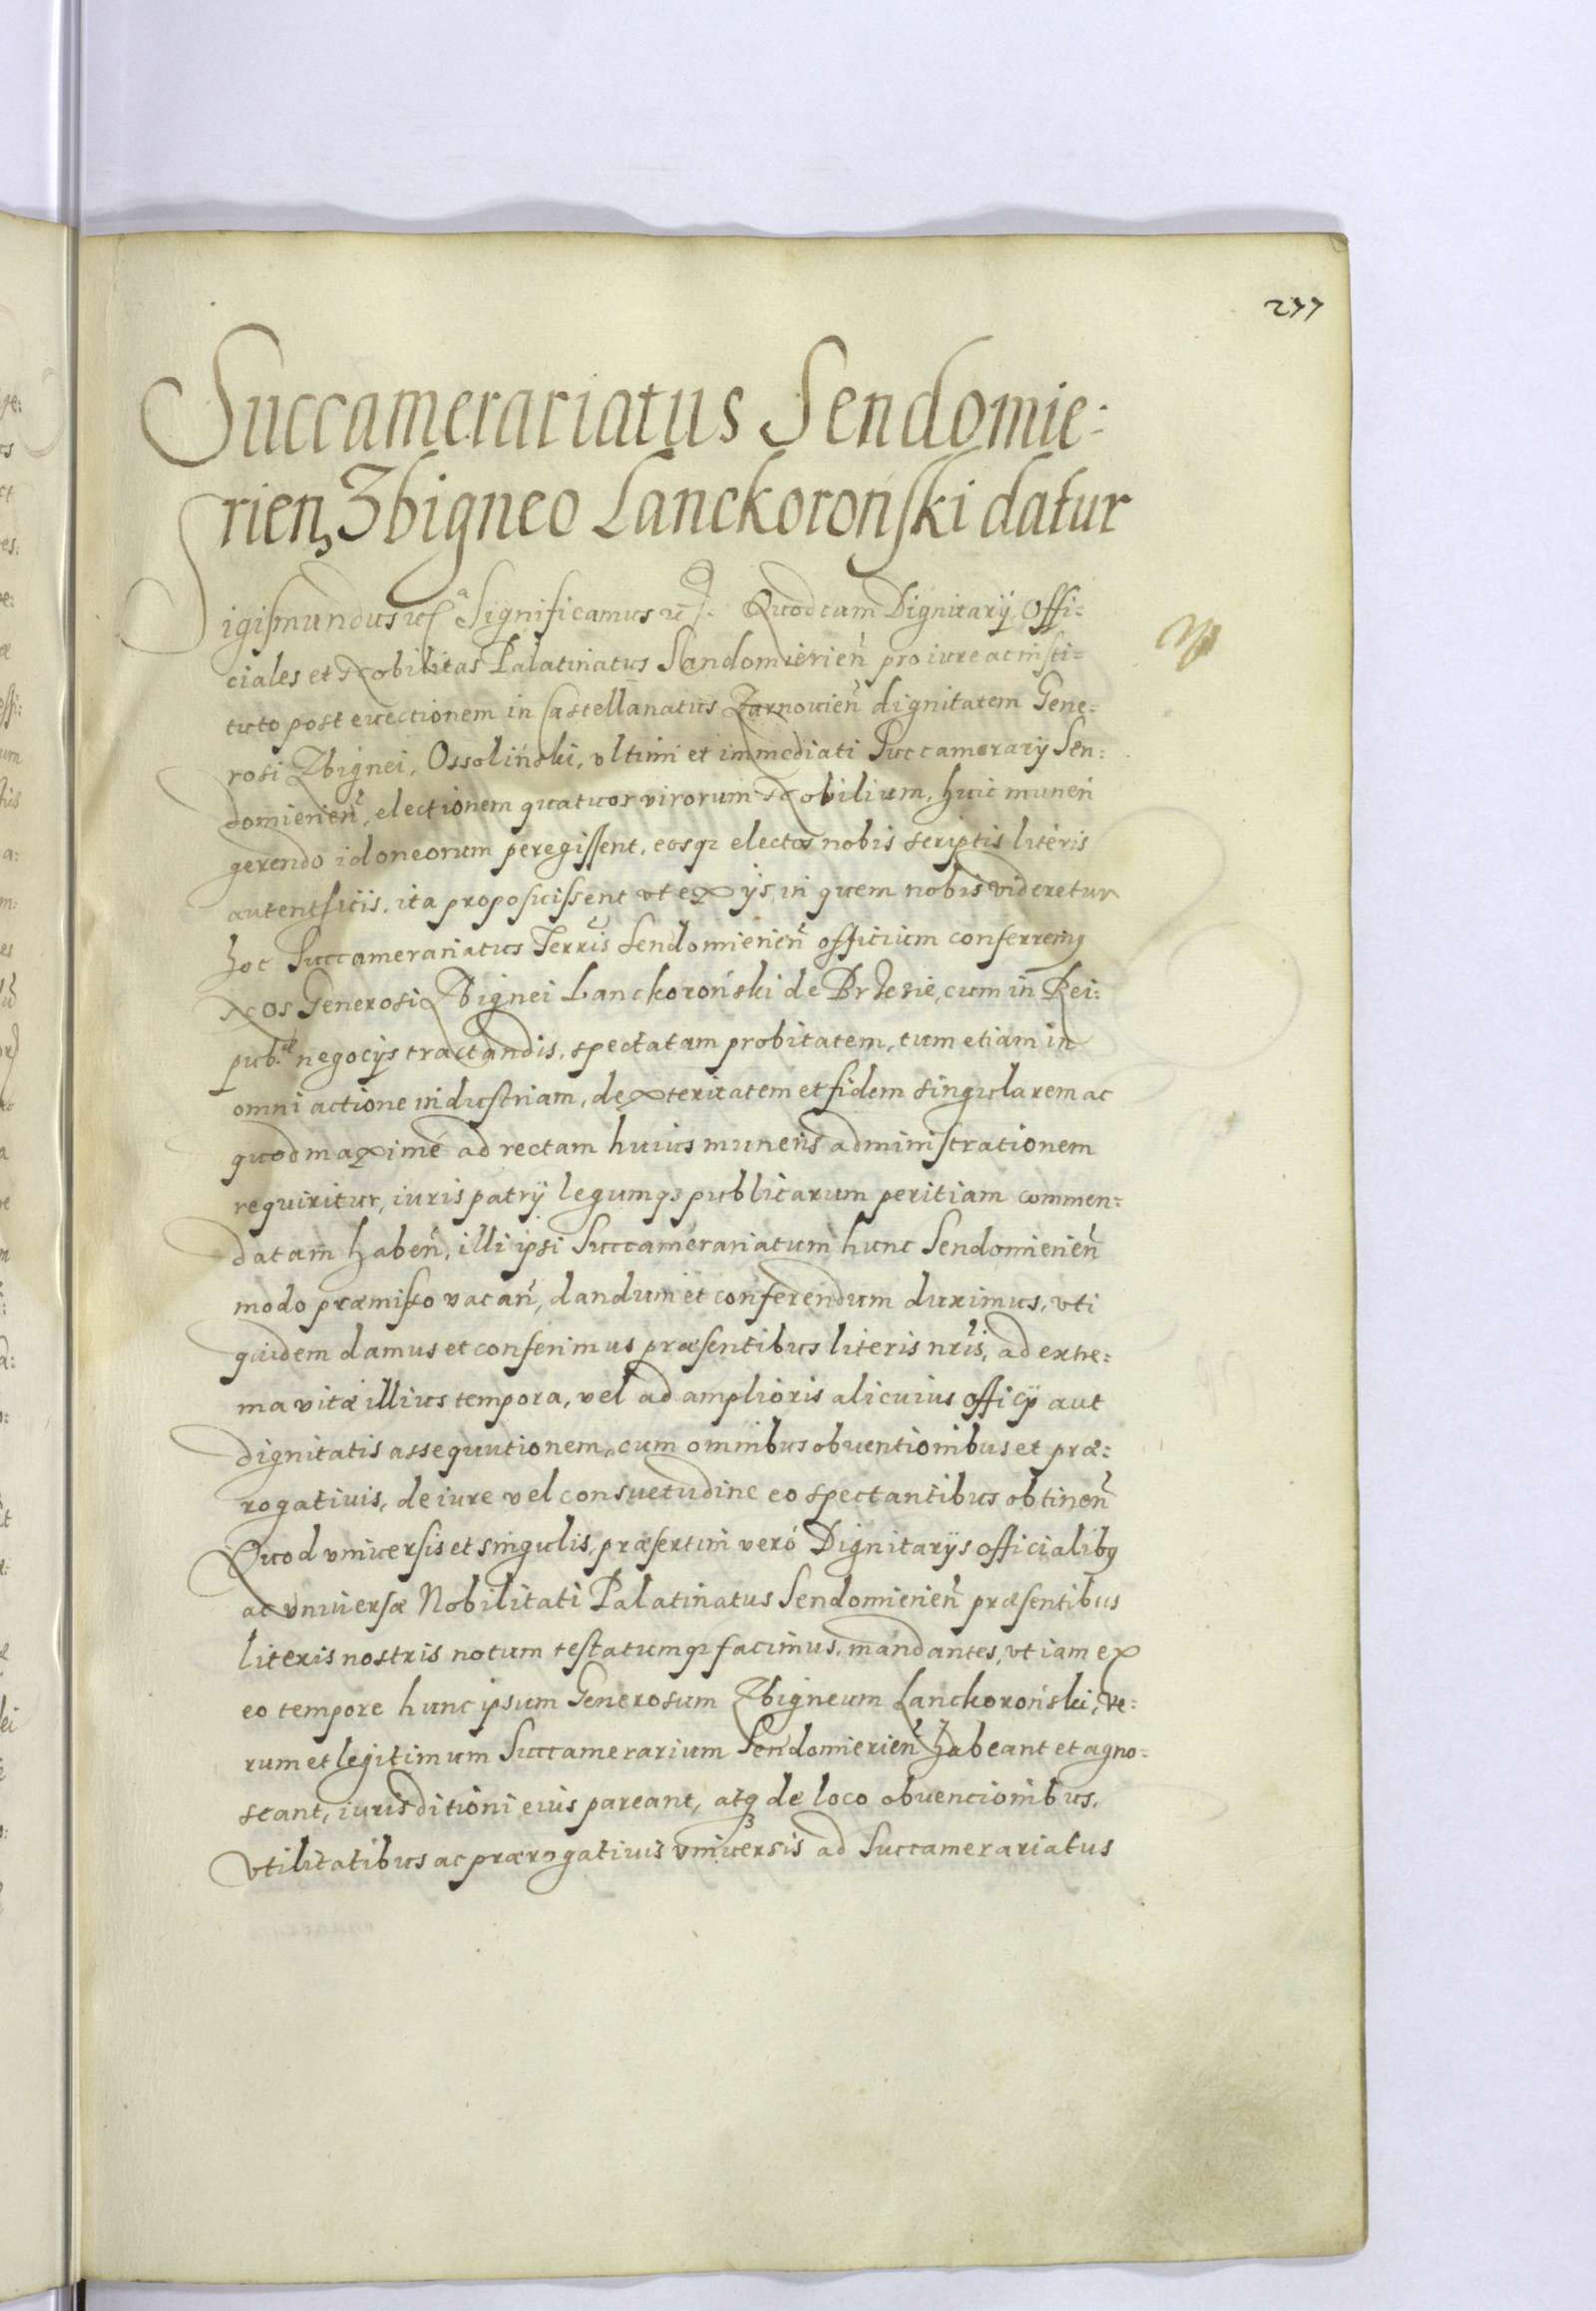 277
Succamerariatus Sendomie:
rien, Zbigneo Lanckoroński datur
Sigismundus etc. Significamus etc. Quod cum Dignitarÿ, Offi=
ciales et Nobilitas Palatinatus Sandomierień pro iure ac insti=
tuto post euectionem in Castellanatus Zarnouień dignitatem Gene=
rosi Zbignei, Ossoliński, vltimi et immediati Succamerarÿ Sen:
domierień, electionem quatuor virorum Nobilium, huic muneri
gerendo idoneorum peregissent, eosq; electos nobis scriptis literis
autentficis, ita proposuissent vt ex ÿs, in quem nobis videretur
hoc Succamerariatus Terrīs Sendomierień officium conferremq
Nos Generosi Zbignei Lanckoroński de Brzezie, cum in Rei:
pub.ᵃᵉ negocÿs tractandis, spectatam probitatem, tum etiam in
omni actione industriam, dexteritatem et fidem singularem ac
quod maximè ad rectam huius muneris administrationem
requiritur, iuris patrÿ legumq; publicarum peritiam commen=
datam habeń, illi ipsi Succamerariatum hunc Sendomierień
modo præmisso vacań, dandum et conferendum duximus, vti
quidem damus et conferimus præsentibus literis nrīs, ad extre=
ma vitæ illius tempora, vel ad amplioris alicuius officÿ aut
dignitatis assequutionem, cum omnibus obuentionibus et præ:
rogatiuis, de iure vel consuetudine eo spectantibus obtineń
Quod vniuersis et singulis, præsertim verò Dignitarÿs officialibq
ac vniuersæ Nobilitati Palatinatus Sendomierień præsentibus
literis nostris notum testatumq; facimus, mandantes, vt iam ex
eo tempore hunc ipsum Generosum Zbigneum Lanckoroński, ve:
rum et legitimum Succamerarium Sendomierień habeant et agno=
scant, iurisditioni eius pareant, atq; de loco obuencionibus,
vtilitatibus ac prærogatiuis vniuersis ad Succamerariatus